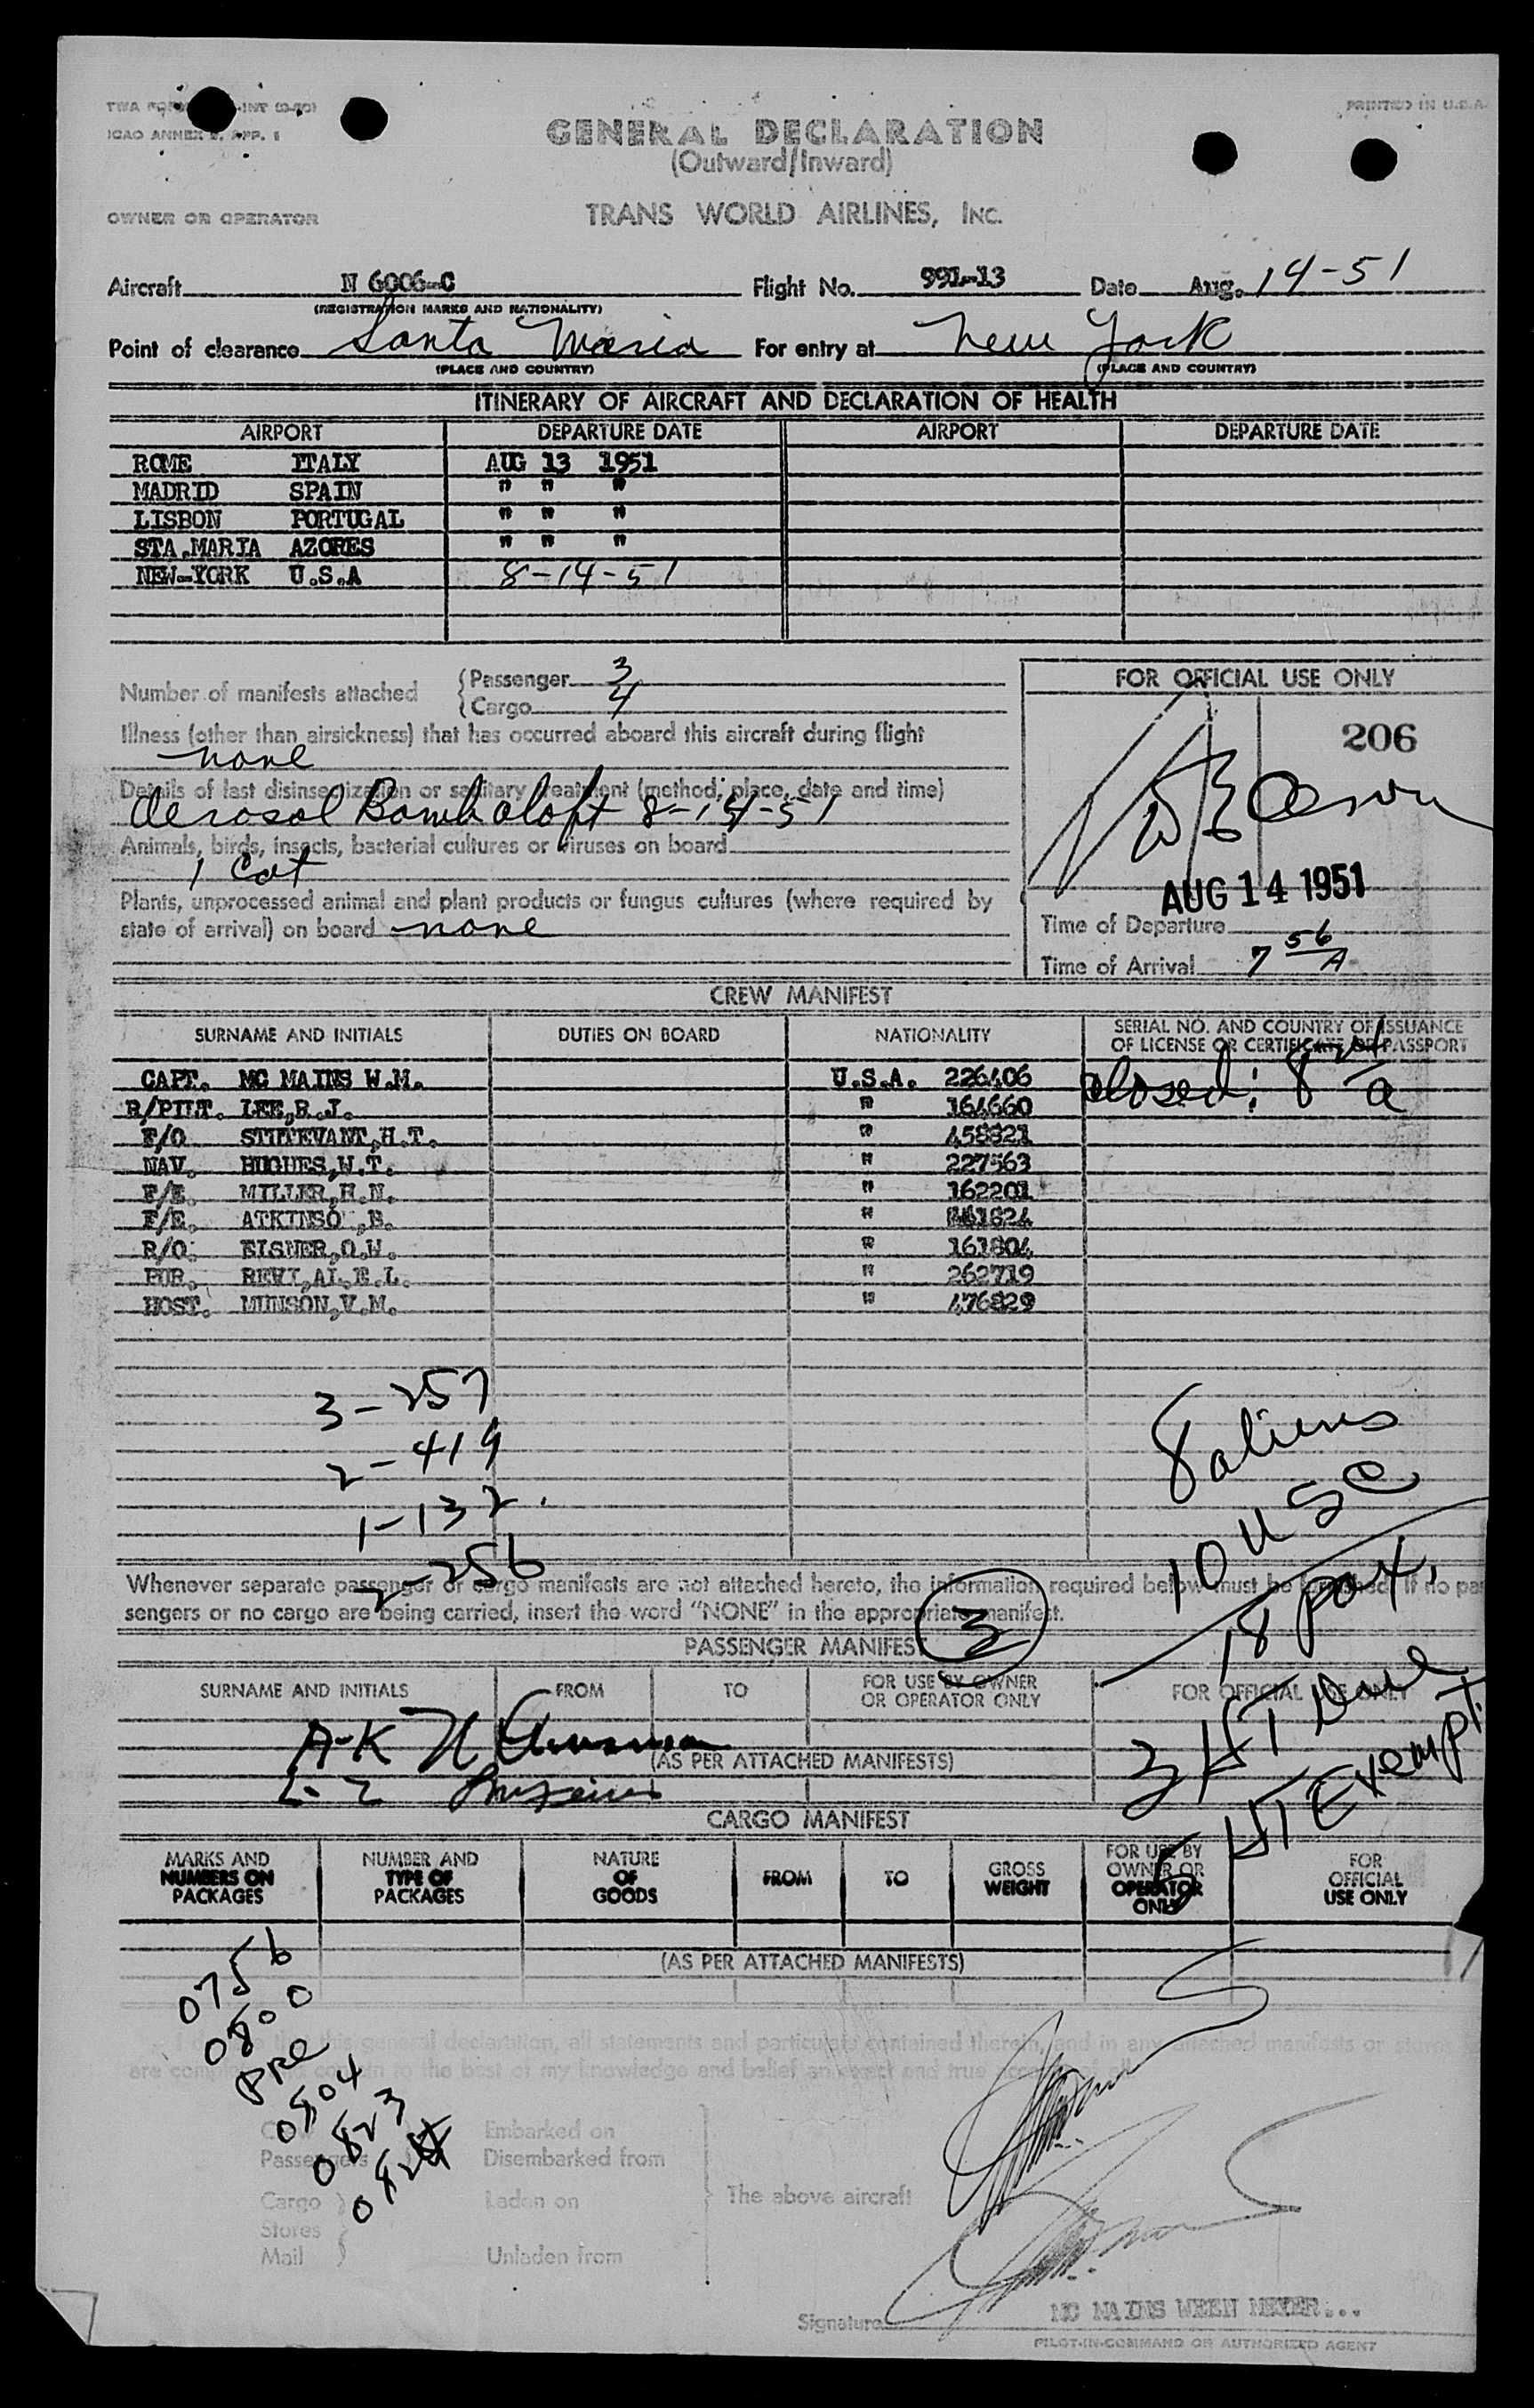 TWA FORM -INT (3-50)
PRINTED IN U.S.A.
ICAO ANNEX 9, APP. 1
GENERAL DECLARATION
(Outward/Inward)
OWNER OR OPERATOR
TRANS WORLD AIRLINES, INC.
Aircraft N 6006-C Flight No. 991-13 Date Aug. 14-51
(REGISTRATION MARKS AND NATIONALITY)
Point of clearance Santa Maria For entry at New York
(PLACE AND COUNTRY) (PLACE AND COUNTRY)
ITINERARY OF AIRCRAFT AND DECLARATION OF HEALTH
AIRPORT DEPARTURE DATE AIRPORT DEPARTURE DATE
ROME ITALY AUG 13 1951
MADRID SPAIN " " "
LISBON PORTUGAL " " "
STA.MARIA AZORES " " "
NEW-YORK U.S.A 8-14-51
Number of manifests attached { Passenger 3
{ Cargo 4
FOR OFFICIAL USE ONLY
206
Illness (other than airsickness) that has occurred aboard this aircraft during flight
none
Details of last disinsectization or sanitary treatment (method, place, date and time)
Aerosol Bomb aloft 8-14-51
Animals, birds, insects, bacterial cultures or viruses on board
1 Cat
Plants, unprocessed animal and plant products or fungus cultures (where required by
state of arrival) on board none
AUG 14 1951
Time of Departure
Time of Arrival 7 56 A
CREW MANIFEST
SURNAME AND INITIALS DUTIES ON BOARD NATIONALITY SERIAL NO. AND COUNTRY OF ISSUANCE
OF LICENSE OR CERTIFICATE OR PASSPORT
closed: 8 24 a
CAPT. MC MAINS W.M. U.S.A. 226406
R/PILT. LEE,R.J. " 164660
F/O STUTEVANT,H.T. " 458821
NAV. HUGHES,W.T. " 227563
F/E. MILLER,H.N. " 162201
F/E. ATKINSO ,B. "
R/O. EISNER,O.W. " 161804
PUR. REVI,AL.E.L. " 262719
HOST. MUNSON,V.M. " 476829
3-257
2-419
1-132.
2-256
8 aliens
10 USC
18 pax.
3 HT Due
5 HT Exempt.
Whenever separate passenger or cargo manifests are not attached hereto, the information required below must be furnished. If no pas
sengers or no cargo are being carried, insert the word "NONE" in the appropriate manifest.
3
PASSENGER MANIFEST
SURNAME AND INITIALS FROM TO FOR USE BY OWNER
OR OPERATOR ONLY FOR OFFICIAL USE ONLY
A-K
(AS PER ATTACHED MANIFESTS)
L-Z
CARGO MANIFEST
MARKS AND
NUMBERS ON
PACKAGES
NUMBER AND
TYPE OF
PACKAGES
NATURE
OF
GOODS
FROM
TO
GROSS
WEIGHT
FOR USE BY
OWNER OR
OPERATOR
ONLY
FOR
OFFICIAL
USE ONLY
(AS PER ATTACHED MANIFESTS)
0756
0800
PRE
0804
0823
0824
this general declaration, all statements and particulars contained therein, and in any attached manifests or stores
to the best of my knowledge and belief an exact and true
Passengers
Embarked on
Disembarked from
Cargo
Stores
Mail
Laden on
Unladen from
The above aircraft
MC MAINS WEEN MEYER...
Signature
PILOT-IN-COMMAND OR AUTHORIZED AGENT